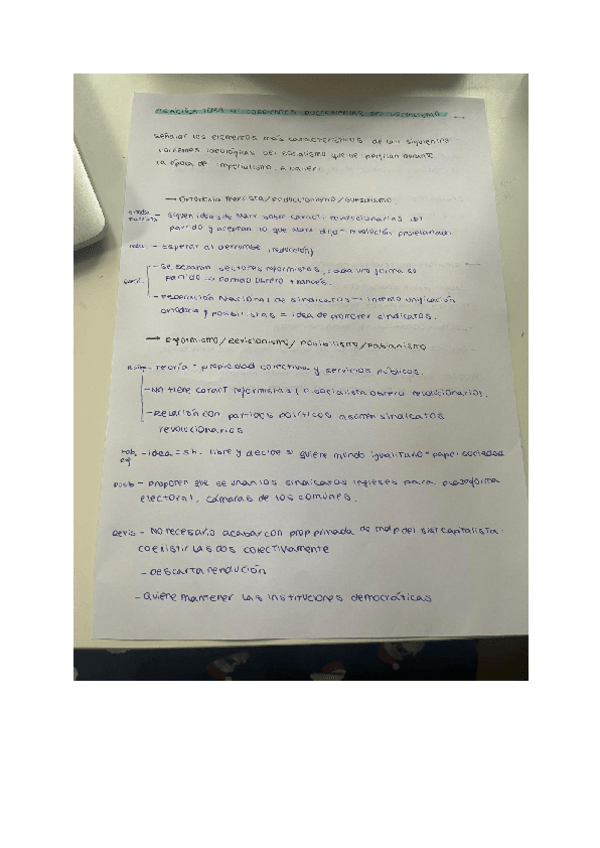 PRÁCTICA TEMA 4: CORRIENTES DOCTRINARIAS DEL SOCIALISMO
Señalar los elementos más característicos de las siguientes
corrientes ideológicas del socialismo que se perfilan durante
la época de imperialismo. A saber:
→ Ortodoxia marxista/
- siguen ideas de Marx sobre caract. revolucionarias del
partido y aceptan lo que Marx dijo - revolución proletariado.
- Esperar al derrumbe (reducción)
- Se separan sectores reformistas, cada uno forma su
partido → Partido obrero francés.
- Federación Nacional de sindicatos - intento unificación
ortodoxia y posibilistas = idea de promover sindicatos.
→ Reformismo/Revisionismo/Posibilismo/Fabianismo
- Teoría - propiedad colectiva y servicios públicos.
- No tiene caract reformistas (P. socialista obrero revolucionario).
- Relación con partidos políticos asumen sindicatos
revolucionarios
- idea = sh. libre y decide si quiere mundo igualitario - papel sociedad
posib - proponen que se unan los sindicatos ingleses para plataforma
electoral, cámaras de los comunes.
Revis - No necesario acabar con prop privada de mdp del sist capitalista:
coexistir las dos colectivamente
- Descarta revolución
- Quiere mantener las instituciones democráticas